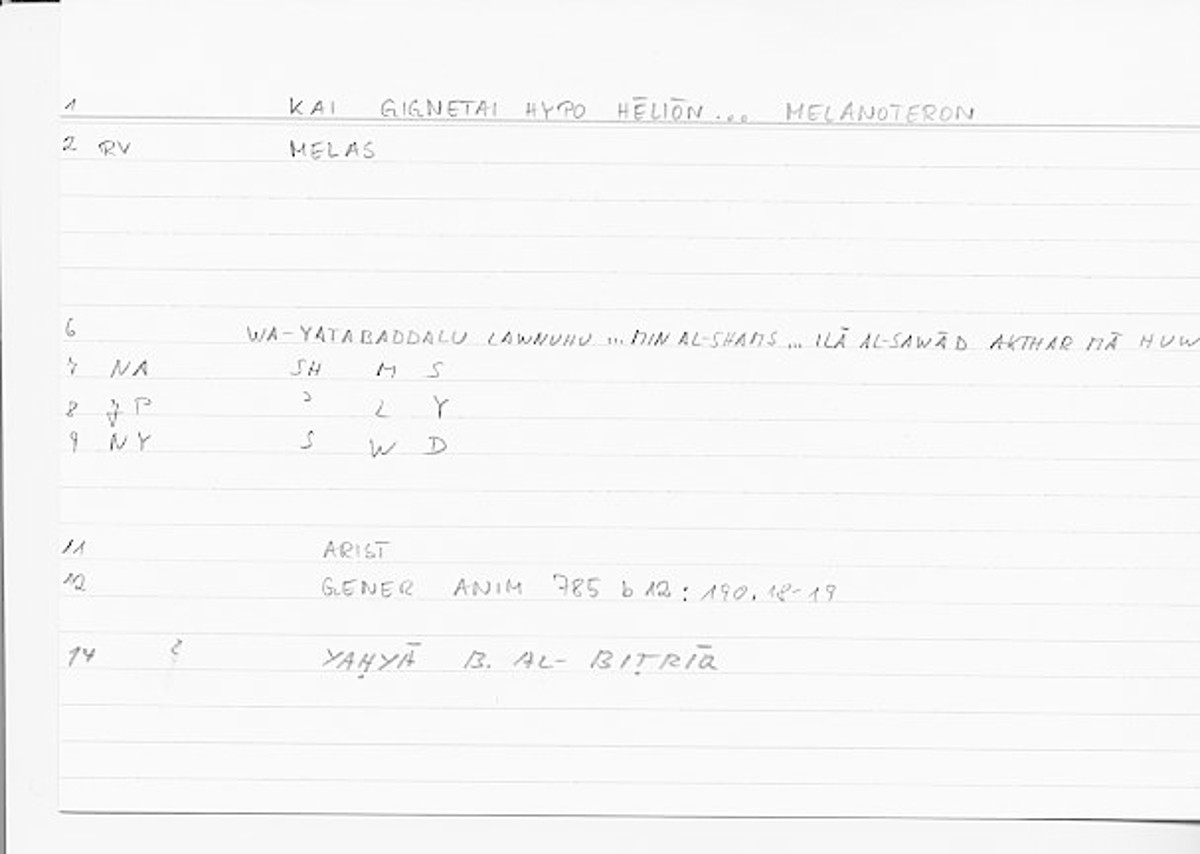 1 KAI GIGNETAI HYPO HĒLIŌN... MELANOTERON
2 RV MELAS
6 WA-YATABADDALU LAWNUHU ... MIN AL-SHAMS ... ILĀ AL-SAWĀD AKTHAR MĀ HUW
7 NA SH M S
8 JP ʾ L Y
9 NY S W D
11 ARIST
12 GENER ANIM 785 b 12: 190.18-19
14 ? YAḤYĀ B. AL-BIṬRĪQ